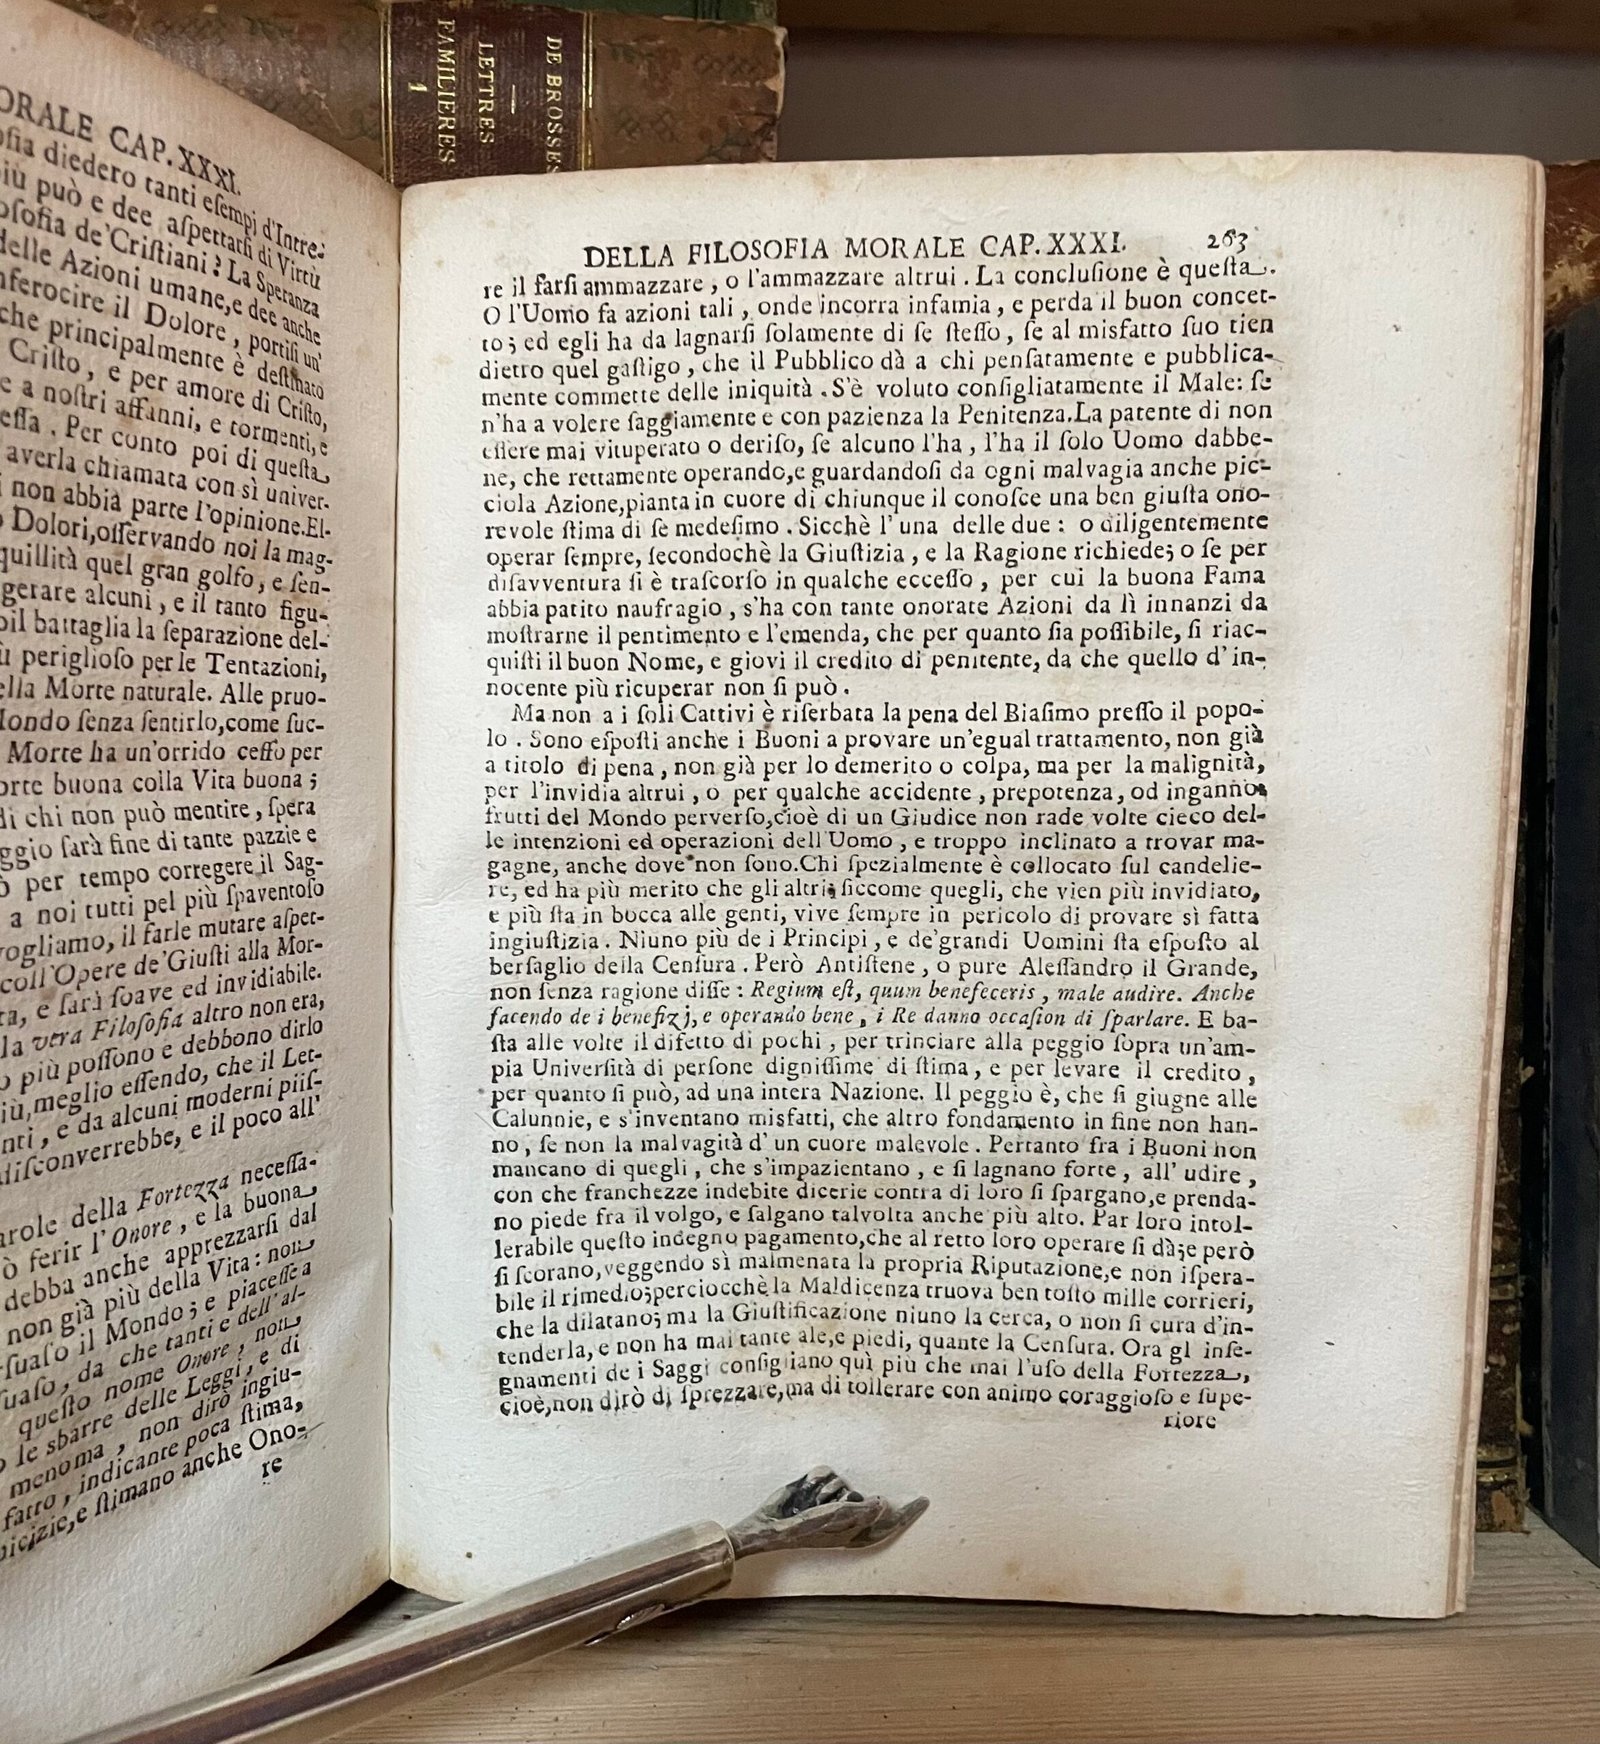 DE BROSSES
LETTRES
FAMILIERES
1
ORALE CAP. XXXI.
ofia diedero tanti eſempi d'Intre-
più può e dee aſpettarſi di Virtù
oſofia de'Criſtiani? La Speranza
delle Azioni umane, e dee anche
nferocire il Dolore, portiſi un'
che principalmente è deſtinato
Criſto, e per amore di Criſto,
e a noſtri affanni, e tormenti, e
eſſa. Per conto poi di queſta
averla chiamata con sì univer-
i non abbia parte l'opinione. El-
o Dolori, oſſervando noi la mag-
quillità quel gran golfo, e ſen-
gerare alcuni, e il tanto figu-
oil battaglia la ſeparazione del-
ù periglioſo per le Tentazioni,
ella Morte naturale. Alle pruo-
Mondo ſenza ſentirlo, come ſuc-
Morte ha un'orrido ceffo per
orte buona colla Vita buona;
di chi non può mentire, ſpera
ggio ſarà fine di tante pazzie e
ò per tempo corregere il Sag-
a noi tutti pel più ſpaventoſo
vogliamo, il farle mutare aſpet-
coll'Opere de'Giuſti alla Mor-
ta, e ſarà ſoave ed invidiabile.
la vera Filoſofia altro non era,
o più poſſono e debbono dirlo
iù, meglio eſſendo, che il Let-
nti, e da alcuni moderni piiſ-
diſconverrebbe, e il poco all'
arole della Fortezza neceſſa-
ò ferir l'Onore, e la buona
debba anche apprezzarſi dal
non già più della Vita: non
-ſuaſo il Mondo; e piaceſſe a
ſuaſo, da che tanti e dell'al-
queſto nome Onore, non
o le sbarre delle Leggi, e di
menoma, non dirò ingiu-
fatto, indicante poca ſtima,
picizie, e ſtimano anche Ono-
re
DELLA FILOSOFIA MORALE CAP. XXXI. 263
re il farſi ammazzare, o l'ammazzare altrui. La concluſione è queſta.
O l'Uomo fa azioni tali, onde incorra infamia, e perda il buon concet-
to; ed egli ha da lagnarſi ſolamente di ſe ſteſſo, ſe al misfatto ſuo tien
dietro quel gaſtigo, che il Pubblico dà a chi penſatamente e pubblica-
mente commette delle iniquità. S'è voluto conſigliatamente il Male: ſe
n'ha a volere ſaggiamente e con pazienza la Penitenza. La patente di non
eſſere mai vituperato o deriſo, ſe alcuno l'ha, l'ha il ſolo Uomo dabbe-
ne, che rettamente operando, e guardandoſi da ogni malvagia anche pic-
ciola Azione, pianta in cuore di chiunque il conoſce una ben giuſta ono-
revole ſtima di ſe medeſimo. Sicchè l'una delle due: o diligentemente
operar ſempre, ſecondochè la Giuſtizia, e la Ragione richiede; o ſe per
diſavventura ſi è traſcorſo in qualche ecceſſo, per cui la buona Fama
abbia patito naufragio, s'ha con tante onorate Azioni da lì innanzi da
moſtrarne il pentimento e l'emenda, che per quanto ſia poſſibile, ſi riac-
quiſti il buon Nome, e giovi il credito di penitente, da che quello d'in-
nocente più ricuperar non ſi può.
Ma non a i ſoli Cattivi è riſerbata la pena del Biaſimo preſſo il popo-
lo. Sono eſpoſti anche i Buoni a provare un'egual trattamento, non già
a titolo di pena, non già per lo demerito o colpa, ma per la malignità,
per l'invidia altrui, o per qualche accidente, prepotenza, od inganno,
frutti del Mondo perverſo, cioè di un Giudice non rade volte cieco del-
le intenzioni ed operazioni dell'Uomo, e troppo inclinato a trovar ma-
gagne, anche dove non ſono. Chi ſpezialmente è collocato ſul candelie-
re, ed ha più merito che gli altri, ſiccome quegli, che vien più invidiato,
e più ſta in bocca alle genti, vive ſempre in pericolo di provare sì fatta
ingiuſtizia. Niuno più de i Principi, e de'grandi Uomini ſta eſpoſto al
berſaglio della Cenſura. Però Antiſtene, o pure Aleſſandro il Grande,
non ſenza ragione diſſe: Regium eſt, quum benefeceris, male audire. Anche
facendo de i benefizj, e operando bene, i Re danno occaſion di ſparlare. E ba-
ſta alle volte il difetto di pochi, per trinciare alla peggio ſopra un'am-
pia Univerſità di perſone digniſſime di ſtima, e per levare il credito,
per quanto ſi può, ad una intera Nazione. Il peggio è, che ſi giugne alle
Calunnie, e s'inventano misfatti, che altro fondamento in fine non han-
no, ſe non la malvagità d'un cuore malevole. Pertanto fra i Buoni non
mancano di quegli, che s'impazientano, e ſi lagnano forte, all'udire,
con che franchezze indebite dicerie contra di loro ſi ſpargano, e prenda-
no piede fra il volgo, e ſalgano talvolta anche più alto. Par loro intol-
lerabile queſto indegno pagamento, che al retto loro operare ſi dà; e però
ſi ſcorano, veggendo sì malmenata la propria Riputazione, e non iſpera-
bile il rimedio; perciocchè la Maldicenza truova ben toſto mille corrieri,
che la dilatano; ma la Giuſtificazione niuno la cerca, o non ſi cura d'in-
tenderla, e non ha mai tante ale, e piedi, quante la Cenſura. Ora gl inſe-
gnamenti de i Saggi conſigliano quì più che mai l'uſo della Fortezza,
cioè, non dirò di ſprezzare, ma di tollerare con animo coraggioſo e ſupe-
riore